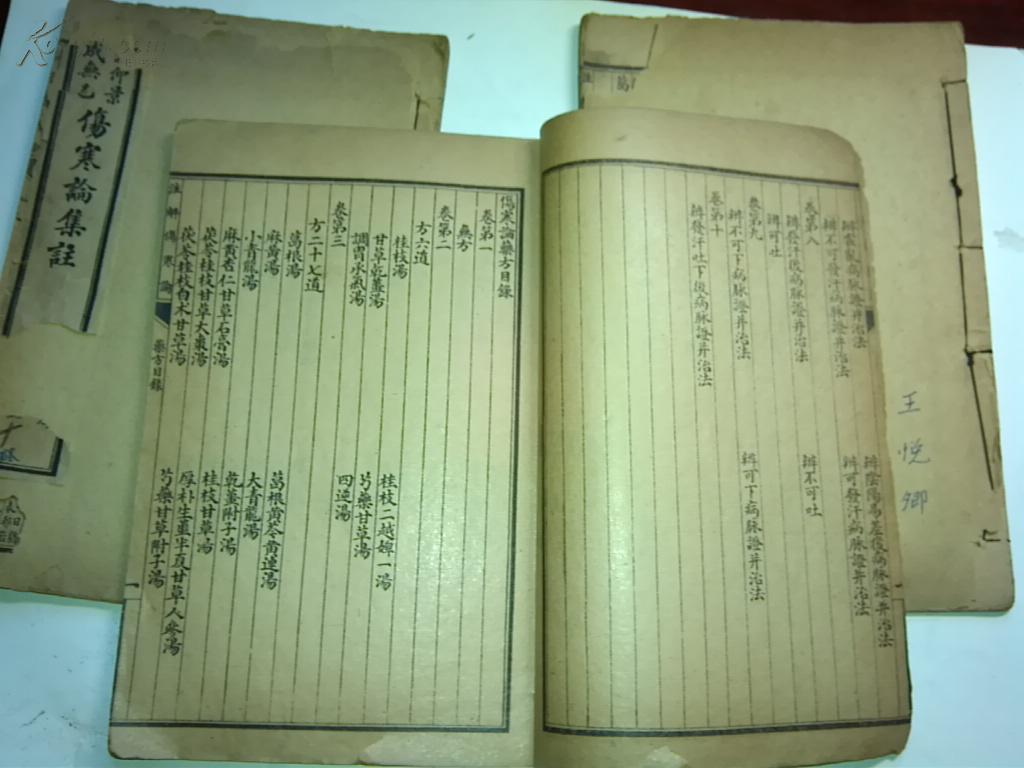 仲景
成無己
傷寒論集註
辨霍亂病脉證并治法
辨陰陽易差後病脉證并治法
辨不可發汗病脉證并治法
辨可發汗病脉證并治法
卷第八
辨發汗後病脉證并治法
辨不可吐
辨可吐
卷第九
辨不可下病脉證并治法
辨可下病脉證并治法
卷第十
辨發汗吐下後病脉證并治法
傷寒論藥方目錄
卷第一
無方
卷第二
方六道
桂枝湯
桂枝二越婢一湯
甘草乾薑湯
芍藥甘草湯
調胃承氣湯
四逆湯
卷第三
方二十七道
葛根湯
葛根黃芩黃連湯
麻黃湯
大青龍湯
小青龍湯
乾薑附子湯
麻黃杏仁甘草石膏湯
桂枝甘草湯
茯苓桂枝甘草大棗湯
厚朴生薑半夏甘草人參湯
茯苓桂枝白朮甘草湯
芍藥甘草附子湯
註解傷寒論
藥方目錄
王悅卿